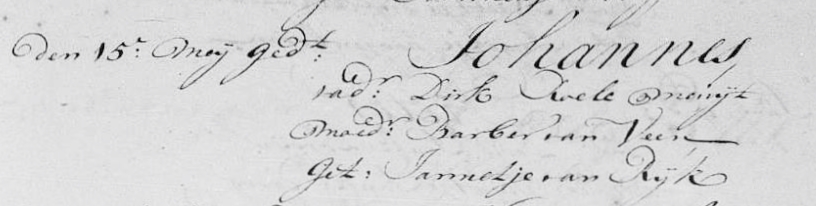 den 15.e Meij Gedt: Johannes
vadr: Dirk Roele Meuijt
Moedr: Barber van Veen
Get: Jannetje van Rijk